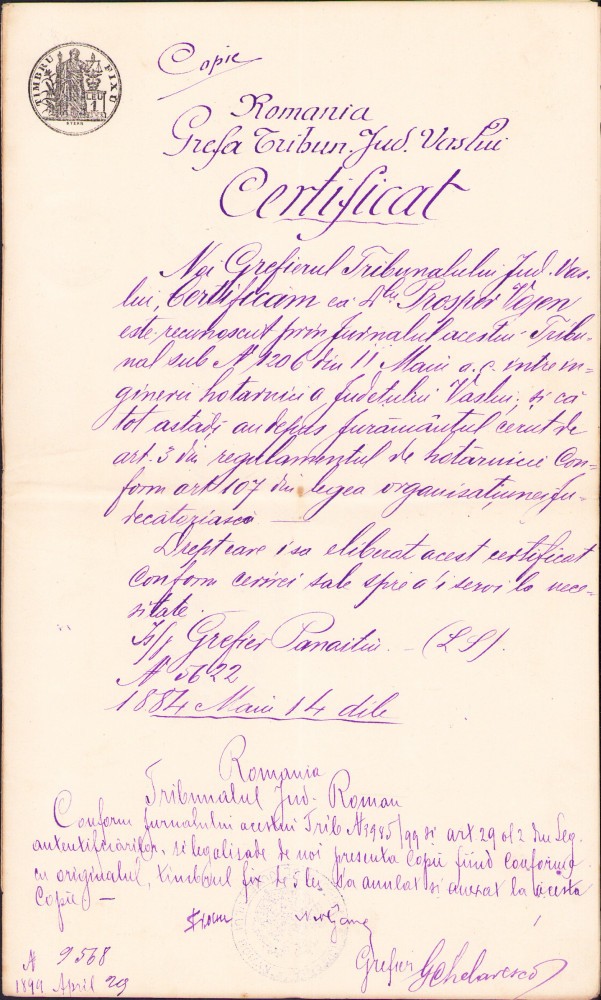 TIMBRU FIXU
LEU
1
Copie
Romania
Grefa Tribun. Jud. Vaslui
Certificat
Noi Grefierul Tribunalului Jud. Vas-
lui, Certificăm că Dlu Prosper Vojen
este recunoscut prin jurnalul acestui Tribu-
nal sub No 1206 din 11 Maiu a.c. intre in-
gineri hotarnici a Judetului Vaslui, si că
tot astadi au depus jurământul cerut de
art. 3 din regulamentul de hotărnicii Con-
form art 107 din legea organisațiunei ju-
decătoriască —
Drept care i sa eliberat acest certificat
conform cererei sale spre a'i servi la nece-
sitate.
Grefier Panaitiu — (LS).
No 5622
1884 Maiu 14 dile
Romania
Tribunalul Jud. Roman
Conform jurnalului acestui Trib No 1985/99 si art 29 al 2 din Leg.
autentificărilor, si legalisade de noi presenta Copie fiind conforme
cu originalul, timbrul fix de 5 lei sa anulat si anexat la acesta
Copie —
Grefier
N 9568
1899 April 29